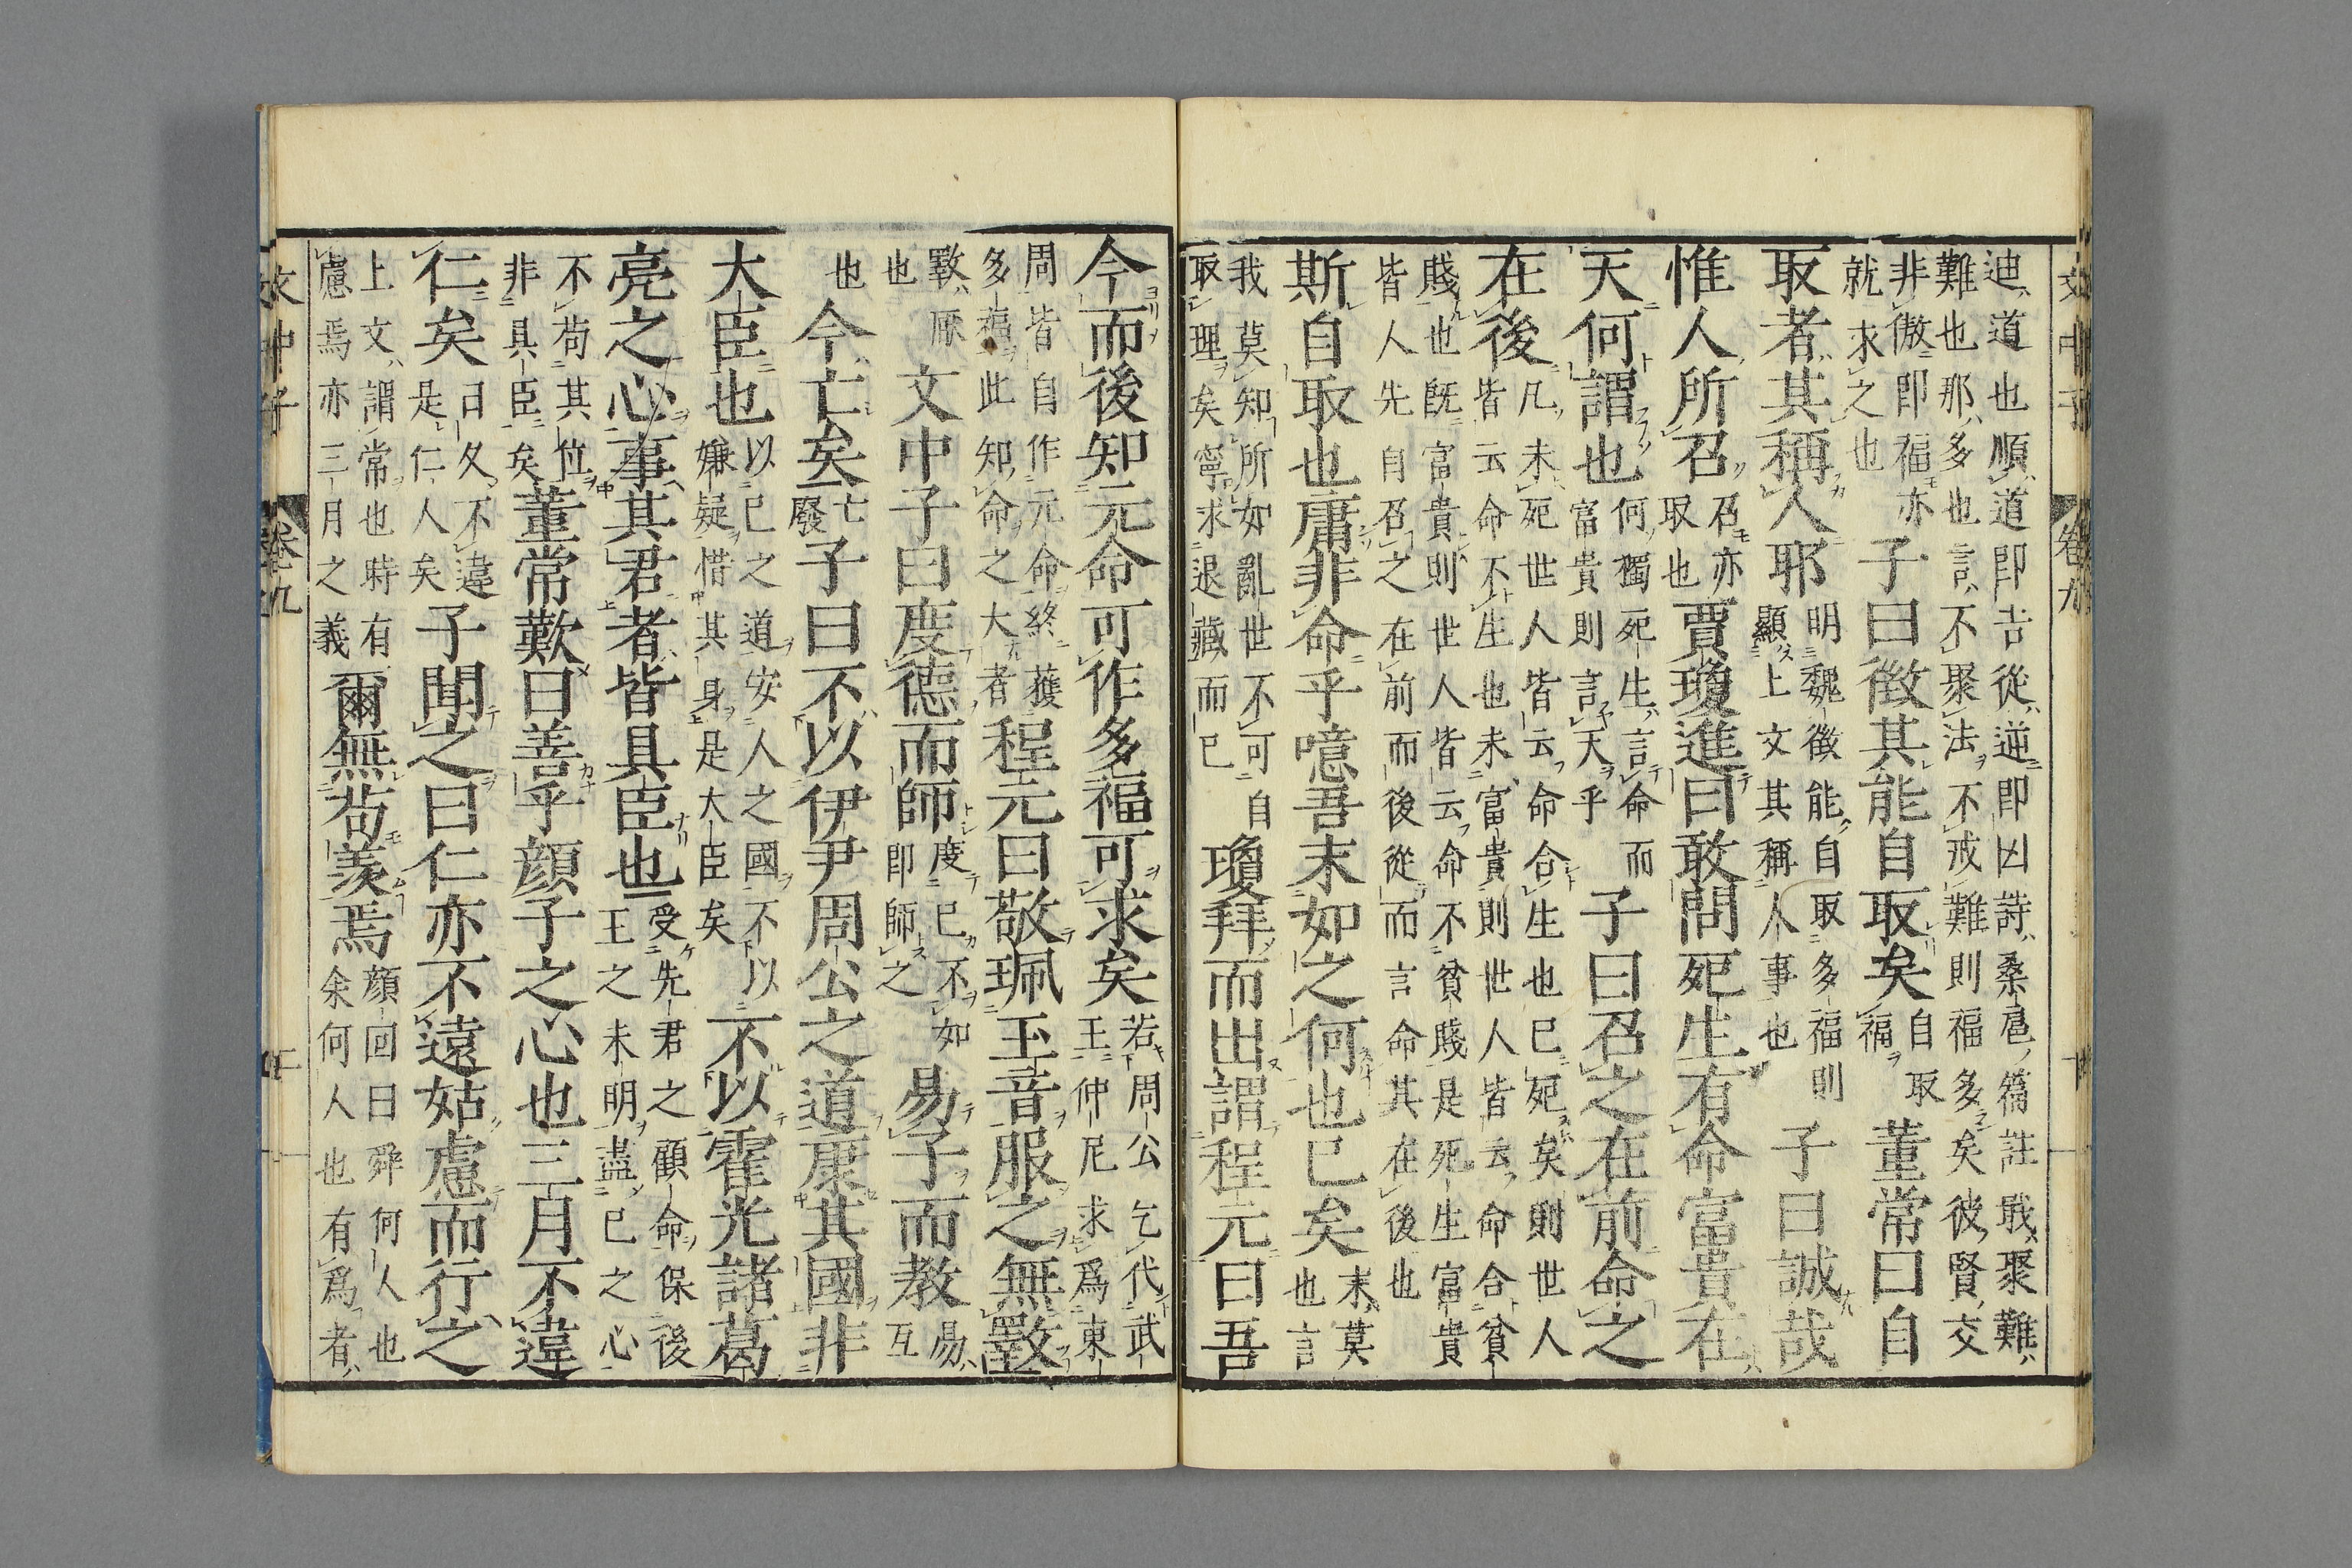 文中子 卷九 十
迪道也順道即吉從逆即凶詩桑扈篇註戢聚難
難也那多也言不聚法不戒難則福多矣彼賢交
非傲即福亦就求之也子曰徵其能自取矣自取福董常曰自
取者其稱人耶明魏徵能自取多福則顯上文其稱人事也子曰誠哉
惟人所召召亦取也賈瓊進曰敢問死生有命富貴在
天何謂也何獨死生言命而富貴則言天乎子曰召之在前命之
在後凡未死世人皆云命合生也已死矣則世人皆云命不生也未富貴則世人皆云命合貧
賤也既富貴則世人皆云命不貧賤是死生富貴皆人先自召之在前而後從而言命其在後也
斯自取也庸非命乎噫吾末如之何也已矣末莫也言
我莫知所如亂世不可自取理矣寧求退藏而已瓊拜而出謂程元曰吾
今而後知元命可作多福可求矣若周公乞代武王仲尼求爲東
周皆自作元命終獲多福此知命之大者程元曰敬珮玉音服之無斁
斁厭也文中子曰度德而師度己不如即師之易子而教易互
也今亡矣亡廢子曰不以伊尹周公之道康其國非
大臣也以己之道安人之國不以嫌疑惜其身是大臣矣不以霍光諸葛
亮之心事其君者皆具臣也受先君之顧命保後王之未明盡己之心
不苟其位非具臣矣董常歎曰善乎顔子之心也三月不違
仁矣日久不違是仁人矣子聞之曰仁亦不遠姑慮而行之
上文謂常也時有慮焉亦三月之義爾無苟羨焉顔回曰舜何人也余何人也有爲者
文中子 卷九